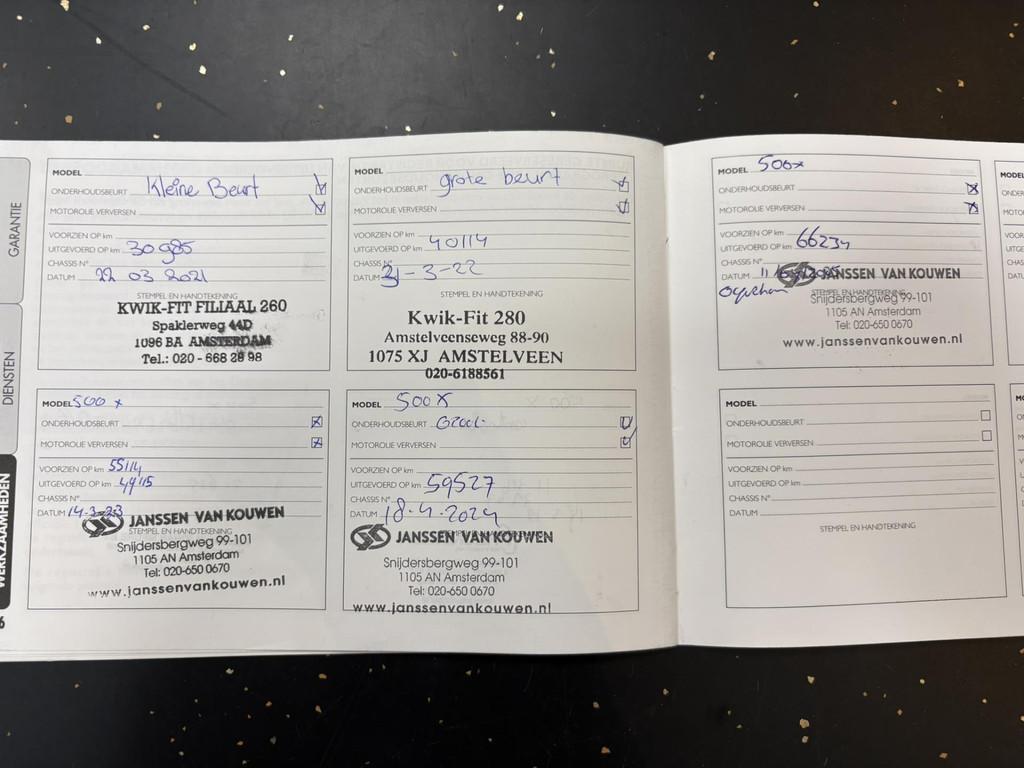 GARANTIE
DIENSTEN
WERKZAAMHEDEN
6
MODEL
ONDERHOUDSBEURT Kleine Beurt
MOTOROLIE VERVERSEN
VOORZIEN OP km
UITGEVOERD OP km 30985
CHASSIS N°
DATUM 22 03 2021
STEMPEL EN HANDTEKENING
KWIK-FIT FILIAAL 260
Spaklerweg 44D
1096 BA AMSTERDAM
Tel.: 020 - 668 28 98
MODEL
ONDERHOUDSBEURT grote beurt
MOTOROLIE VERVERSEN
VOORZIEN OP km
UITGEVOERD OP km 40114
CHASSIS N°
DATUM 21-3-22
STEMPEL EN HANDTEKENING
Kwik-Fit 280
Amstelveenseweg 88-90
1075 XJ AMSTELVEEN
020-6188561
MODEL 500x
ONDERHOUDSBEURT
MOTOROLIE VERVERSEN
VOORZIEN OP km 55114
UITGEVOERD OP km 49115
CHASSIS N°
DATUM 14-3-23
JANSSEN VAN KOUWEN
STEMPEL EN HANDTEKENING
Snijdersbergweg 99-101
1105 AN Amsterdam
Tel: 020-650 0670
www.janssenvankouwen.nl
MODEL 500X
ONDERHOUDSBEURT
MOTOROLIE VERVERSEN
VOORZIEN OP km
UITGEVOERD OP km 59527
CHASSIS N°
DATUM 18-4-2024
JANSSEN VAN KOUWEN
Snijdersbergweg 99-101
1105 AN Amsterdam
Tel: 020-650 0670
www.janssenvankouwen.nl
MODEL 500x
ONDERHOUDSBEURT
MOTOROLIE VERVERSEN
VOORZIEN OP km
UITGEVOERD OP km 66234
CHASSIS N°
DATUM
JANSSEN VAN KOUWEN
STEMPEL EN HANDTEKENING
Snijdersbergweg 99-101
1105 AN Amsterdam
Tel: 020-650 0670
www.janssenvankouwen.nl
MODEL
ONDERHOUDSBEURT
MOTOROLIE VERVERSEN
VOORZIEN OP km
UITGEVOERD OP km
CHASSIS N°
DATUM
STEMPEL EN HANDTEKENING